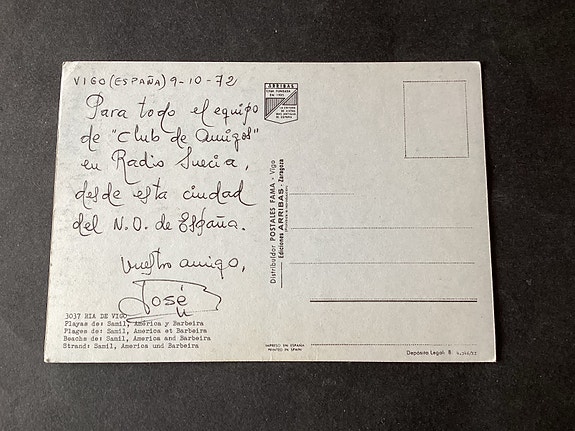 VIGO (ESPAÑA) 9-10-72
Para todo el equipo
de "Club de Amigos"
en Radio Suecia,
desde esta ciudad
del N.O. de España.
Vuestro amigo,
José
3037 RIA DE VIGO
Playas de: Samil, América y Barbeira
Plages de: Samil, America et Barbeira
Beachs de: Samil, America and Barbeira
Strand: Samil, America und Barbeira
ARRIBAS
CASA FUNDADA
Distribuidor POSTALES FAMA - Vigo
Ediciones ARRIBAS - Zaragoza
IMPRESO EN ESPAÑA
PRINTED IN SPAIN
Depósito Legal: B